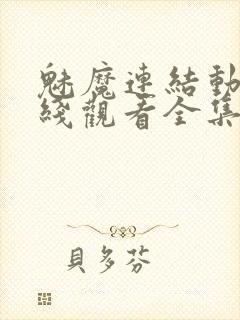 魅魔連結動
綫觀看全集
貝多芬